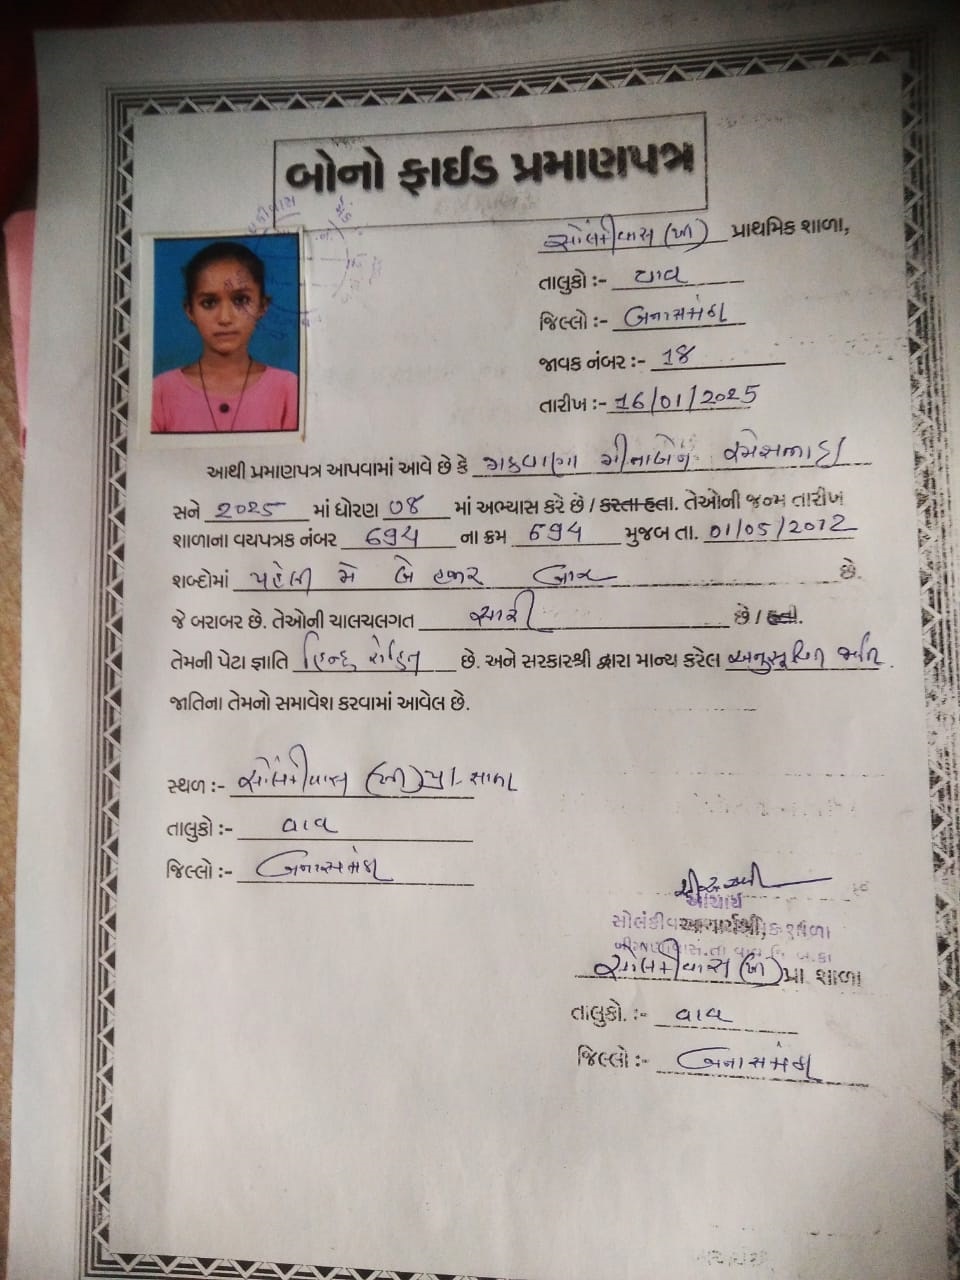 બોનો ફાઈડ પ્રમાણપત્ર
સોલંકીવાસ (ખી) પ્રાથમિક શાળા,
તાલુકો :- વાવ
જિલ્લો :- બનાસકાંઠા
જાવક નંબર :- 18
તારીખ :- 16/01/2025
આથી પ્રમાણપત્ર આપવામાં આવે છે કે ગીતાબેન રમેશભાઈ
સને 2025 માં ધોરણ 07 માં અભ્યાસ કરે છે / કરતા હતા. તેઓની જન્મ તારીખ
શાળાના વયપત્રક નંબર 694 ના ક્રમ 694 મુજબ તા. 01/05/2012
શબ્દોમાં પહેલી મે બે હજાર બાર છે.
જે બરાબર છે. તેઓની ચાલચલગત સારી છે / હતી.
તેમની પેટા જ્ઞાતિ હિન્દુ રોહિત છે. અને સરકારશ્રી દ્વારા માન્ય કરેલ અનુસૂચિત જાતિ.
જાતિના તેમનો સમાવેશ કરવામાં આવેલ છે.
સ્થળ :- સોલંકીવાસ (ખી) પ્રા. શાળા
તાલુકો :- વાવ
જિલ્લો :- બનાસકાંઠા
આચાર્ય
આચાર્યશ્રી,
સોલંકીવાસ (ખી) પ્રા શાળા
તાલુકો. :- વાવ
જિલ્લો :- બનાસકાંઠા